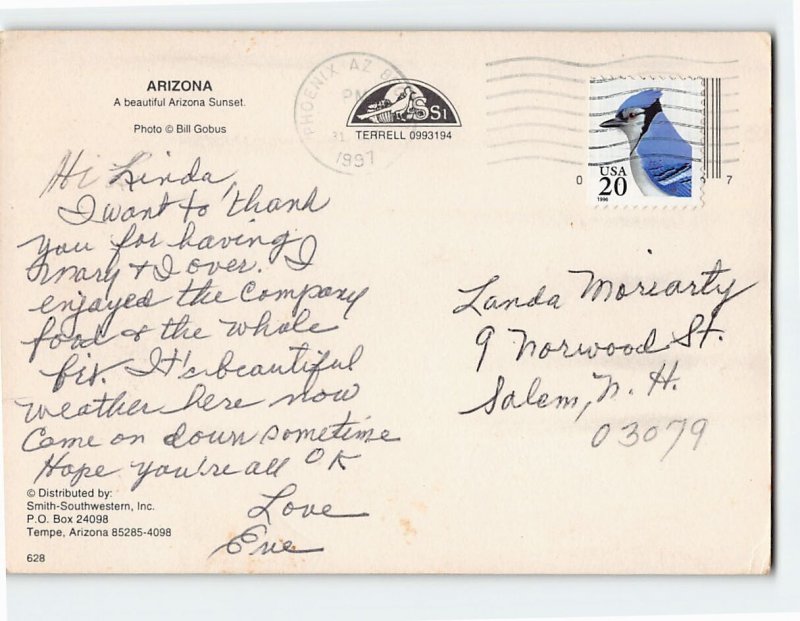 ARIZONA
A beautiful Arizona Sunset.
Photo © Bill Gobus
PHOENIX AZ
PM
31
1997
SSI
TERRELL 0993194
USA
20
1996
0
7
Hi Linda,
I want to thank
you for having
Mary & I over. I
enjoyed the company
food & the whole
It's beautiful
weather here now
Come on down sometime
Hope you're all OK
Love
Eve
Landa Moriarty
9 Norwood St.
Salem, N. H.
03079
© Distributed by:
Smith-Southwestern, Inc.
P.O. Box 24098
Tempe, Arizona 85285-4098
628